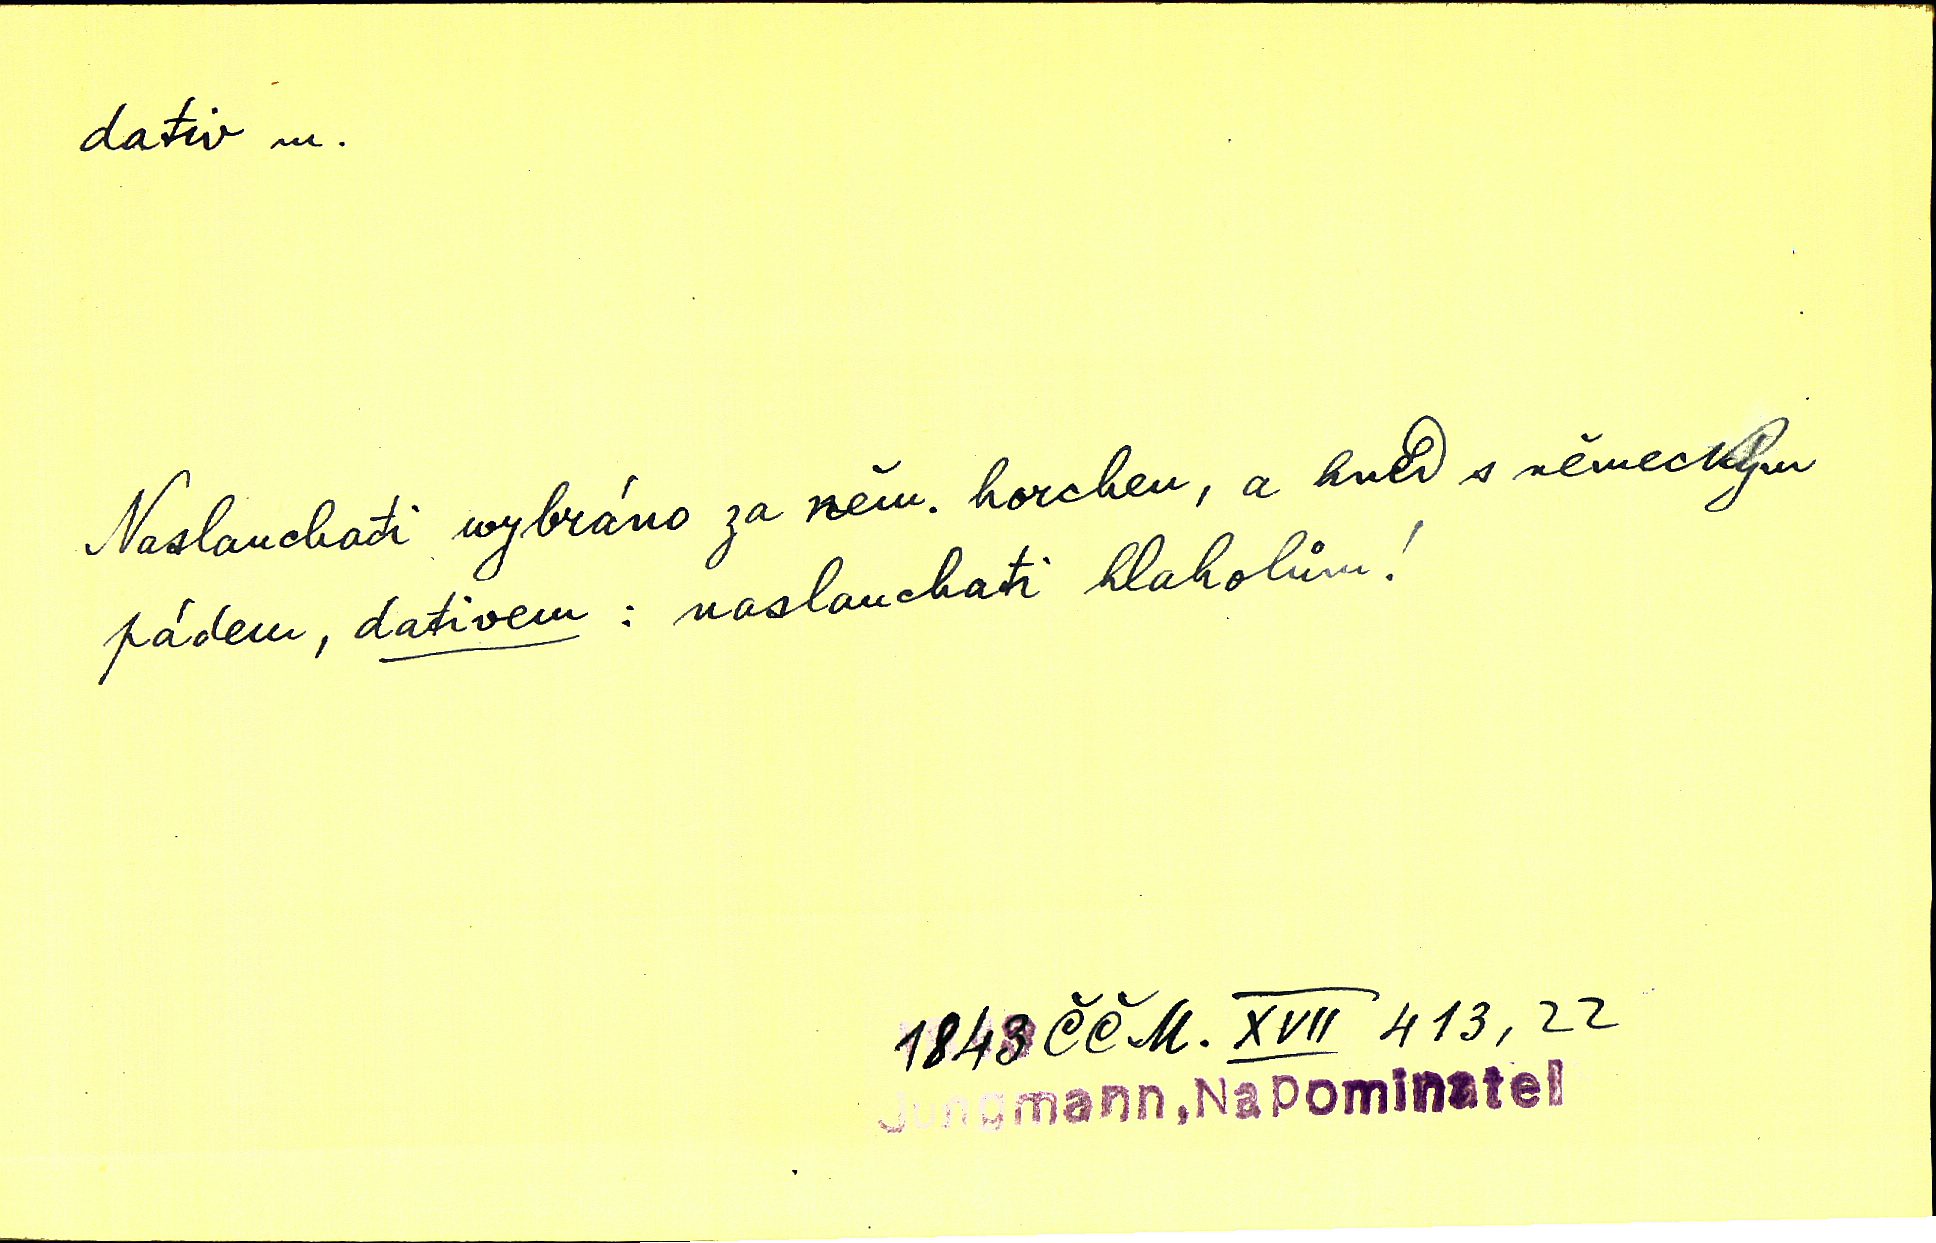 dativ m.
Naslauchati wybráno za něm. horchen, a hned s německým
pádem, dativem : naslauchati hlaholům!
1843 ČČM. XVII 413, 22
Jungmann, Napominatel